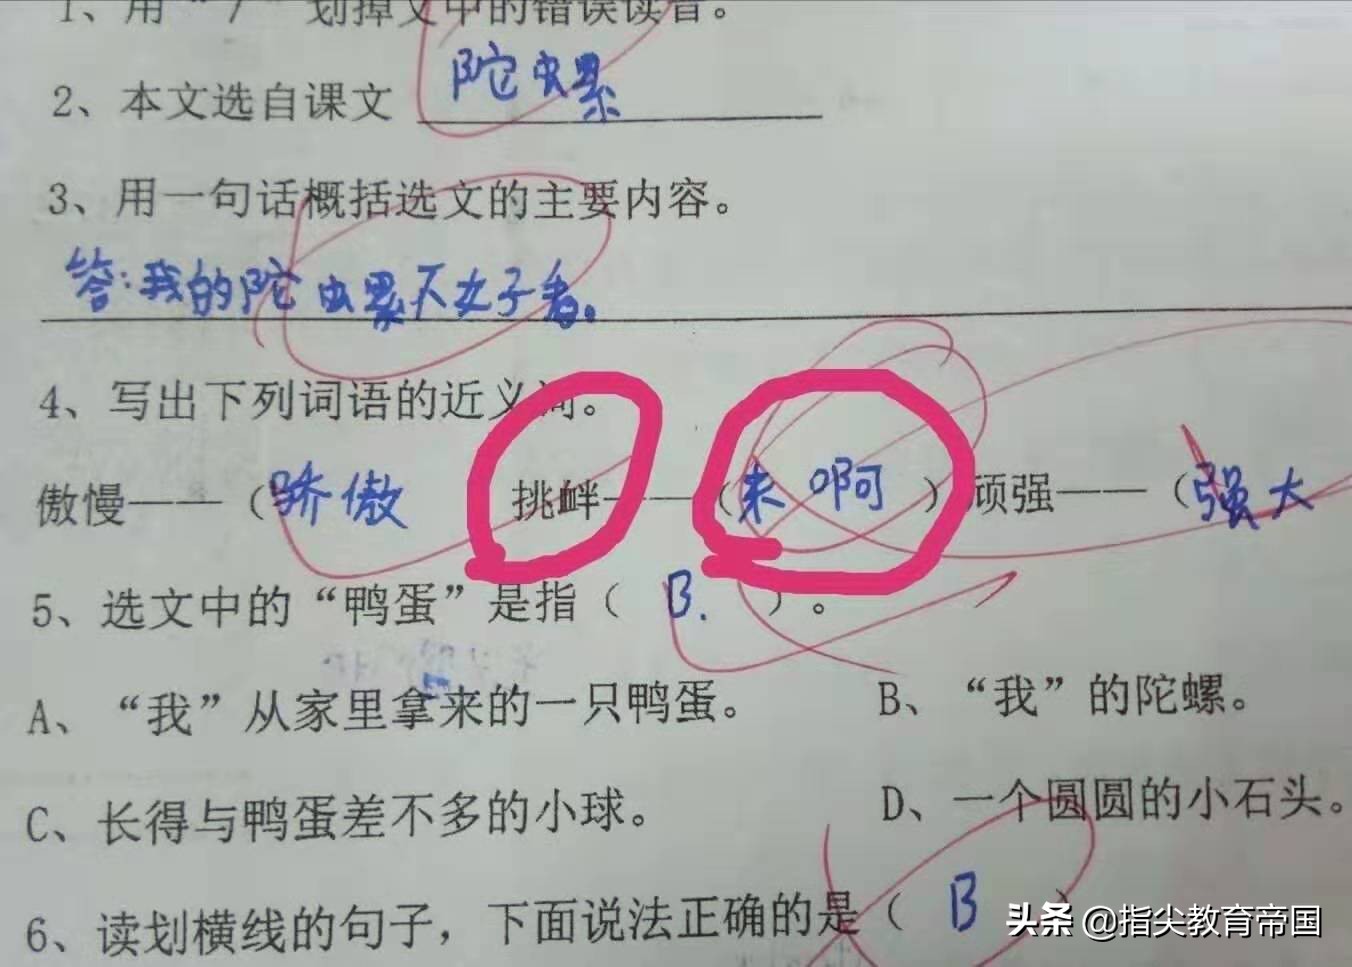 1、用“/”划掉文中的错误读音。
2、本文选自课文 陀螺
3、用一句话概括选文的主要内容。
答:我的陀螺不好看。
4、写出下列词语的近义词。
傲慢——（骄傲 挑衅——（来啊）顽强——（强大
5、选文中的“鸭蛋”是指（B.）。
A、“我”从家里拿来的一只鸭蛋。 B、“我”的陀螺。
C、长得与鸭蛋差不多的小球。 D、一个圆圆的小石头。
6、读划横线的句子，下面说法正确的是（B）
头条 @指尖教育帝国